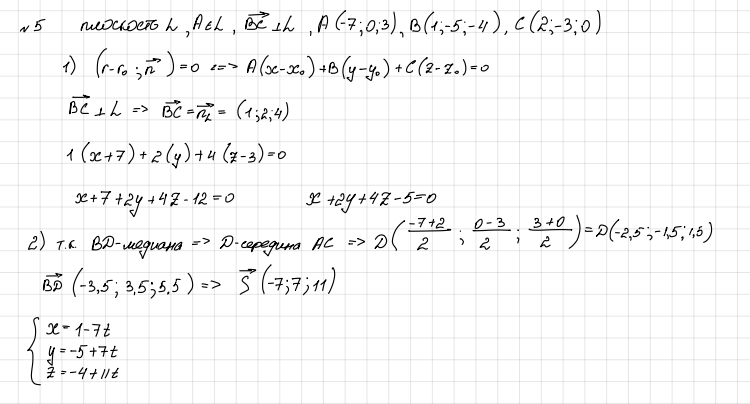 №5 плоскость L, A∈L, \overrightarrow{BC}⊥L, A(-7;0;3), B(1;-5;-4), C(2;-3;0)
1) (r-r₀; \vec{n})=0 <=> A(x-x₀)+B(y-y₀)+C(z-z₀)=0
\overrightarrow{BC}⊥L => \overrightarrow{BC}=\vec{n}_L=(1;2;4)
1(x+7)+2(y)+4(z-3)=0
x+7+2y+4z-12=0 x+2y+4z-5=0
2) т.к. BD-медиана => D-середина AC => D(\frac{-7+2}{2}; \frac{0-3}{2}; \frac{3+0}{2})=D(-2,5;-1,5;1,5)
\overrightarrow{BD}(-3,5; 3,5; 5,5) => \vec{S}(-7;7;11)
{ x=1-7t
y=-5+7t
z=-4+11t